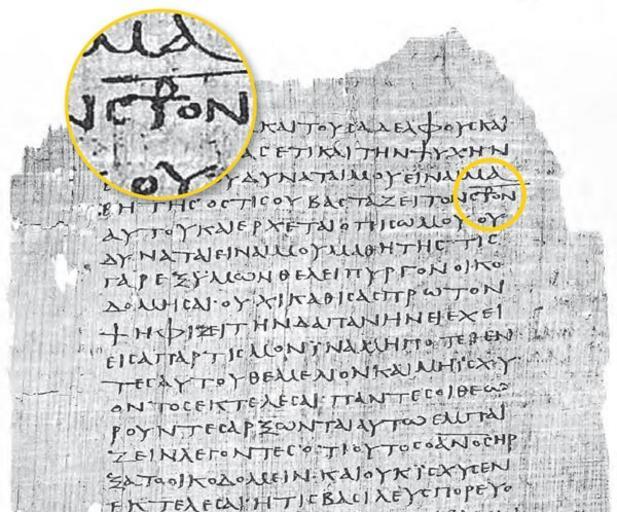 ΜΑ
ΝϹ⳨ΟΝ
ΟΥ
ΚΑΙΤΟΥϹΑΔΕΛΦΟΥϹΚΑΙ
ΑϹΕΤΙΚΑΙΤΗΝΨΥΧΗΝ
ΔΥΝΑΤΑΙΜΟΥΕΙΝΑΙΜΑ
ΘΗΤΗϹΟϹΤΙϹΟΥΒΑϹΤΑΖΕΙΤΟΝϹ⳨ΟΝ
ΑΥΤΟΥΚΑΙΕΡΧΕΤΑΙΟΠΙϹΩΜΟΥΟΥ
ΔΥΝΑΤΑΙΕΙΝΑΙΜΟΥΜΑΘΗΤΗϹ ΤΙϹ
ΓΑΡΕΞΥΜΩΝΘΕΛΕΙΠΥΡΓΟΝΟΙΚΟ
ΔΟΜΗϹΑΙ·ΟΥΧΙΚΑΘΙϹΑϹΠΡΩΤΟΝ
ΨΗΦΙΖΕΙΤΗΝΔΑΠΑΝΗΝΕΙΕΧΕΙ
ΕΙϹΑΠΑΡΤΙϹΜΟΝΪΝΑΜΗΠΟΤΕΘΕΝ
ΤΕϹΑΥΤΟΥΘΕΜΕΛΙΟΝΚΑΙΜΗΙϹΧΥ
ΟΝΤΟϹΕΚΤΕΛΕϹΑΙ·ΠΑΝΤΕϹΟΙΘΕΩ
ΡΟΥΝΤΕϹΑΡΞΩΝΤΑΙΑΥΤΩΕΜΠΑΙ
ΖΕΙΝΛΕΓΟΝΤΕϹ·ΟΤΙΟΥΤΟϹΟΑΝΟϹΗΡ
ΞΑΤΟΟΙΚΟΔΟΜΕΙΝ·ΚΑΙΟΥΚΙϹΧΥϹΕΝ
ΕΚΤΕΛΕϹΑΙ·ΗΤΙϹΒΑϹΙΛΕΥϹΠΟΡΕΥΟ